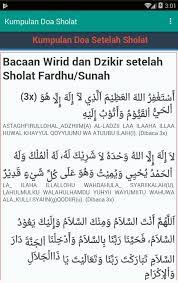 3:01
Kumpulan Doa Sholat
Kumpulan Doa Setelah Sholat
Bacaan Wirid dan Dzikir setelah
Sholat Fardhu/Sunah
أَسْتَغْفِرُ اللهَ الْعَظِيْمَ الَّذِي لَا إِلَهَ إِلَّا هُوَ (3x)
الْحَيُّ الْقَيُّوْمُ وَأَتُوْبُ إِلَيْهِ
ASTAGHFIRULLOHAL_ADZHIIM(A) AL-LADZII LAA ILAAHA ILLAA
HUWAL KHAYYUL QOYYUUMU WA ATUUBU ILAIH(I). (Dibaca 3x)
لَا إِلَهَ إِلَّا اللهُ وَحْدَهُ لَا شَرِيْكَ لَهُ، لَهُ الْمُلْكُ وَلَهُ
الْحَمْدُ يُحْيِي وَيُمِيْتُ وَهُوَ عَلَى كُلِّ شَيْءٍ قَدِيْرٌ
LAA_ ILAHA ILLALLOHU WAHDAHULA_ SYARIIKALAH(U),
LAHULMULKU WALAHULHAMDU YUHYII WAYUMIITU WAHUWA
'ALA_KULLI SYAIIN(q)QODIIR(u). (Dibaca 3x)
اَللَّهُمَّ أَنْتَ السَّلَامُ وَمِنْكَ السَّلَامُ وَإِلَيْكَ يَعُوْدُ
السَّلَامُ فَحَيِّنَا رَبَّنَا بِالسَّلَامِ وَأَدْخِلْنَا الْجَنَّةَ دَارَ
السَّلَامِ تَبَارَكْتَ رَبَّنَا وَتَعَالَيْتَ يَا ذَاالْجَلَالِ
وَالْإِكْرَامِ